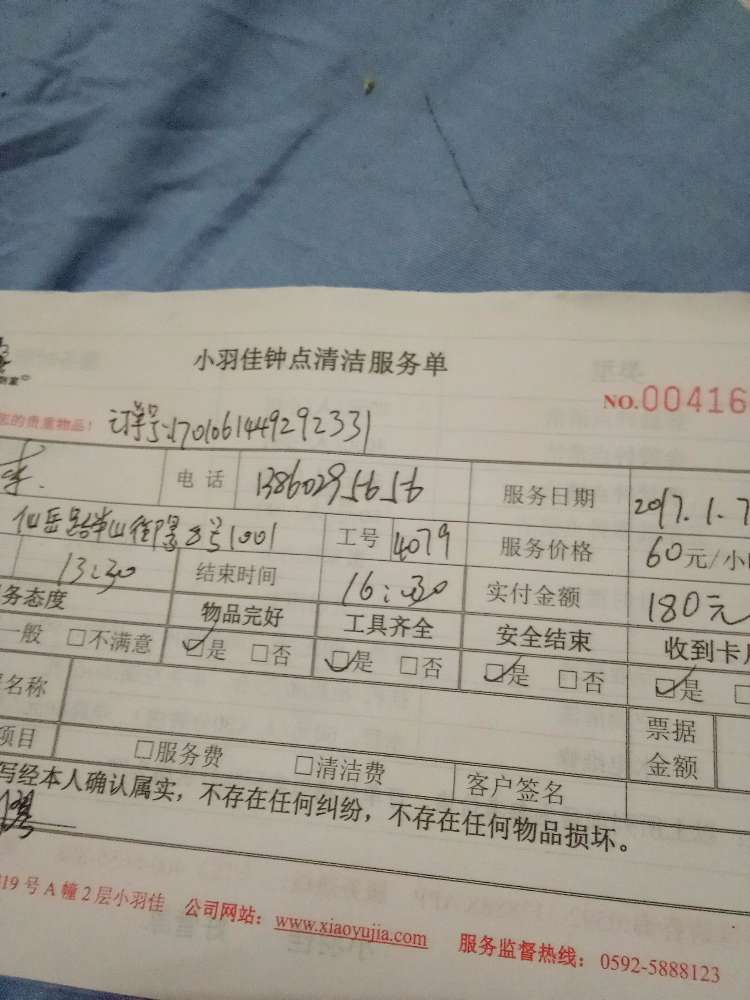 小羽佳钟点清洁服务单
NO.00416
您的贵重物品! 订单号:1701061449292331
李. 电话 13860295656 服务日期 2017.1.7
仙岳路 8号1001 工号 4079 服务价格 60元/小
13:30 结束时间 16:30 实付金额 180元
务态度 物品完好 工具齐全 安全结束 收到卡
一般 □不满意 ☑是 □否 ☑是 □否 ☑是 □否 ☑是 □
名称 票据
项目 □服务费 □清洁费 客户签名 金额
写经本人确认属实，不存在任何纠纷，不存在任何物品损坏。
19号A幢2层小羽佳 公司网站：www.xiaoyujia.com 服务监督热线：0592-5888123